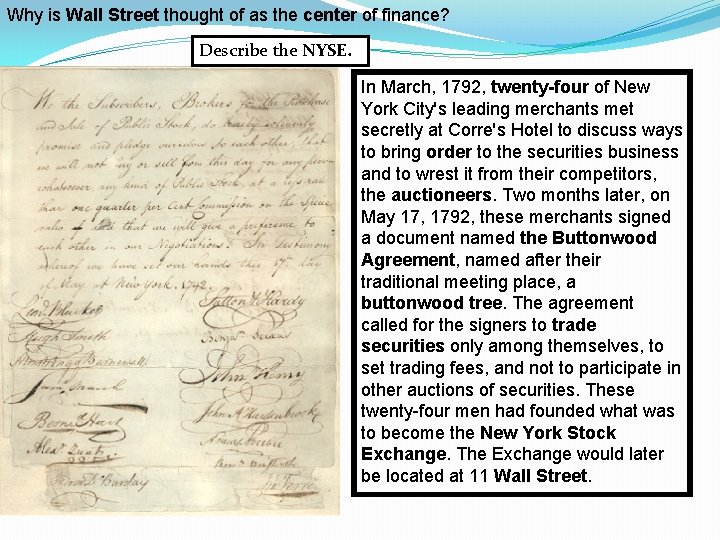 Why is Wall Street thought of as the center of finance?
Describe the NYSE.
We the Subscribers, Brokers for the Purchase
and Sale of Public Stock, do hereby solemnly
promise and pledge ourselves to each other, that
we will not buy or sell from this day for any person
whatsoever, any kind of Public Stock, at a less rate
than one quarter per Cent Commission on the Specie
value & and that we will give a preference to
each other in our Negotiations. In Testimony
whereof we have set our hands this 17th day
of May at New York. 1792.
Sutton & Hardy
Hugh Smith
John Henry
Bernd Hart
Alexr Zuntz
Ephraim Hart
In March, 1792, twenty-four of New
York City's leading merchants met
secretly at Corre's Hotel to discuss ways
to bring order to the securities business
and to wrest it from their competitors,
the auctioneers. Two months later, on
May 17, 1792, these merchants signed
a document named the Buttonwood
Agreement, named after their
traditional meeting place, a
buttonwood tree. The agreement
called for the signers to trade
securities only among themselves, to
set trading fees, and not to participate in
other auctions of securities. These
twenty-four men had founded what was
to become the New York Stock
Exchange. The Exchange would later
be located at 11 Wall Street.